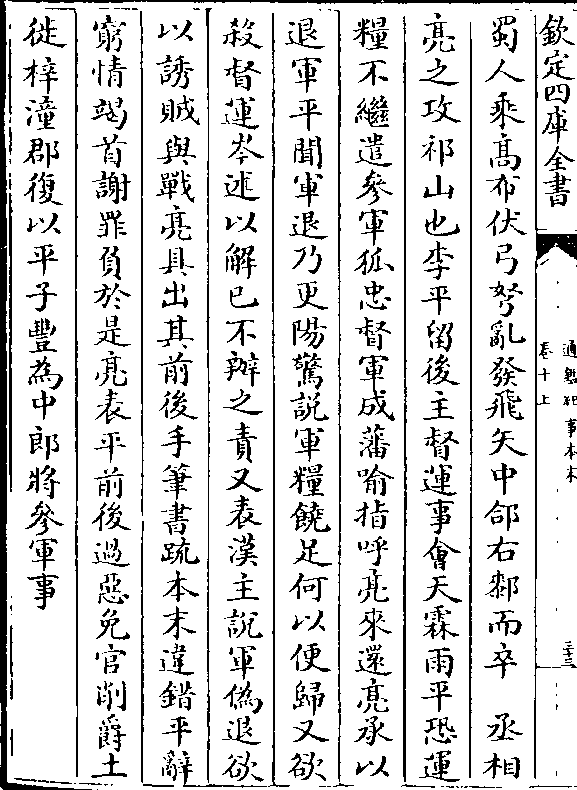 欽定四庫全書
通鑑紀事本末
卷十上
三十三
蜀人乘高布伏弓弩亂發飛矢中郃右䣛而卒　丞相
亮之攻祁山也李平留後主督運事會天霖雨平恐運
糧不繼遣參軍狐忠督軍成藩喻指呼亮來還亮承以
退軍平聞軍退乃更陽驚說軍糧饒足何以便歸又欲
殺督運岑述以解已不辦之責又表漢主說軍偽退欲
以誘賊與戰亮具出其前後手筆書疏本末違錯平辭
窮情竭首謝罪負於是亮表平前後過惡免官削爵土
徙梓潼郡復以平子豐為中郎將參軍事